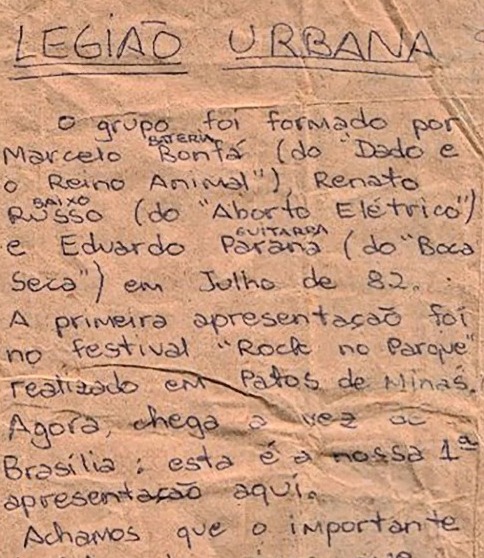 LEGIÃO URBANA
O grupo foi formado por
BATERIA
Marcelo Bonfá (do "Dado e
o Reino Animal"), Renato
BAIXO
Russo (do "Aborto Elétrico")
GUITARRA
e Eduardo Paraná (do "Boca
Seca") em Julho de 82.
A primeira apresentação foi
no festival "Rock no Parque"
realizado em Patos de Minas.
Agora, chega a vez de
Brasília: esta é a nossa 1ª
apresentação aqui.
Achamos que o importante